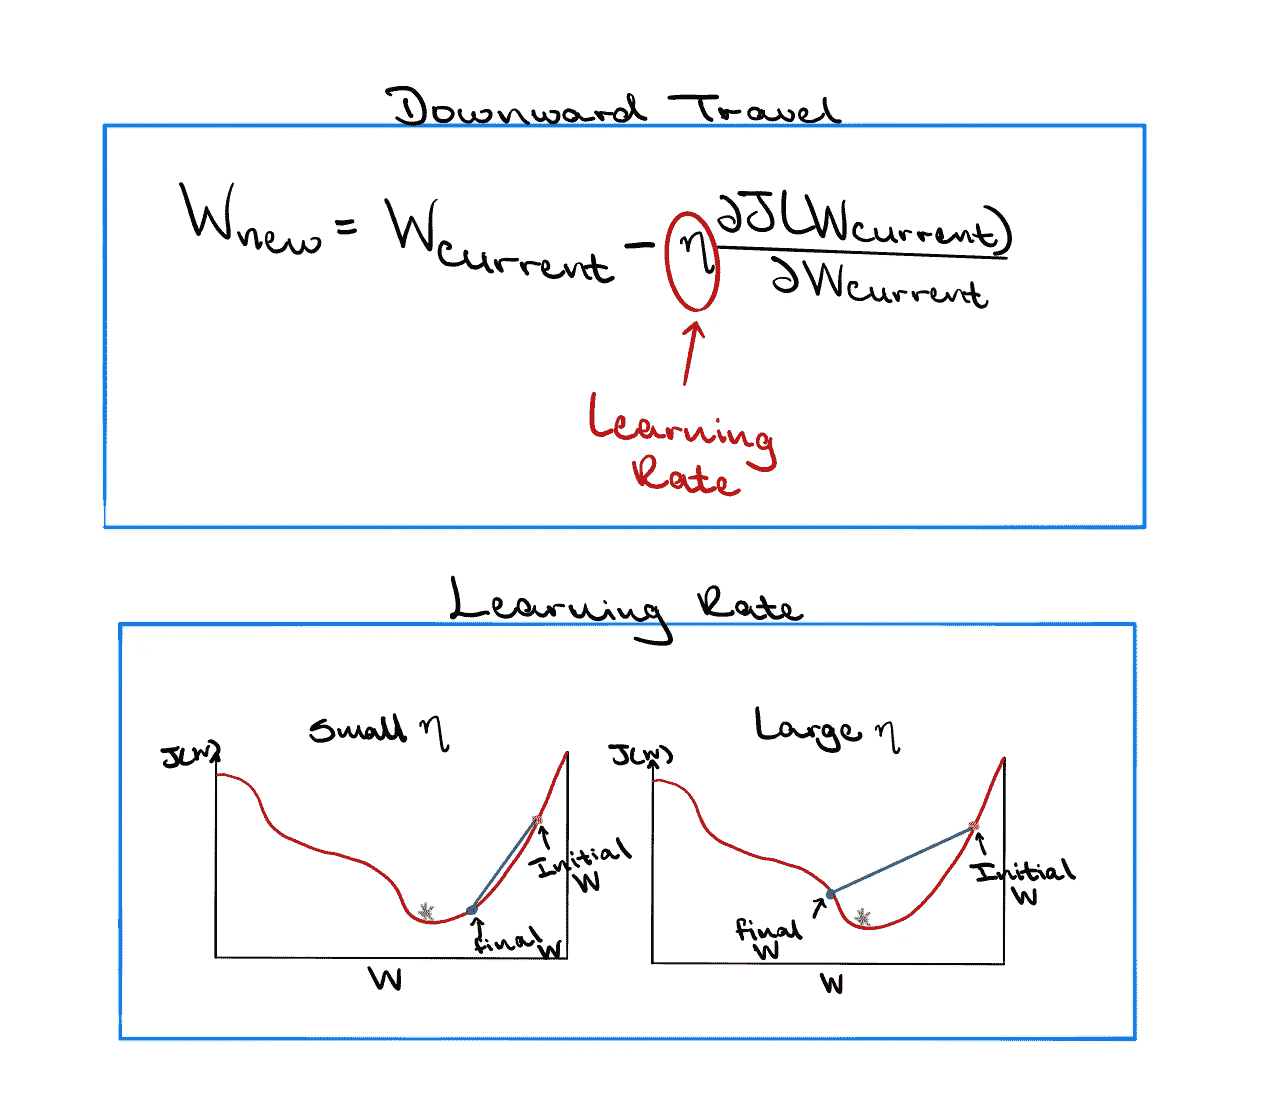 Downward Travel
Wnew = Wcurrent - η ∂J(Wcurrent)
∂Wcurrent
Learning
Rate
Learning Rate
Small η
J(W)
Initial
W
final
W
W
Large η
J(W)
Initial
W
final
W
W